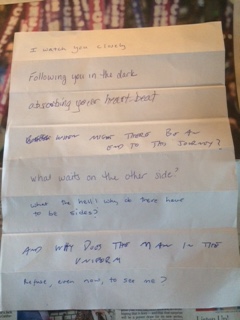 I watch you closely
Following you in the dark
absorbing your heart beat
WHEN MIGHT THERE BE AN
END TO THIS JOURNEY?
What waits on the other side?
What the hell! Why do there have
to be sides?
AND WHY DOES THE MAN IN THE
UNIFORM
Refuse, even now, to see me?
Listen Up!